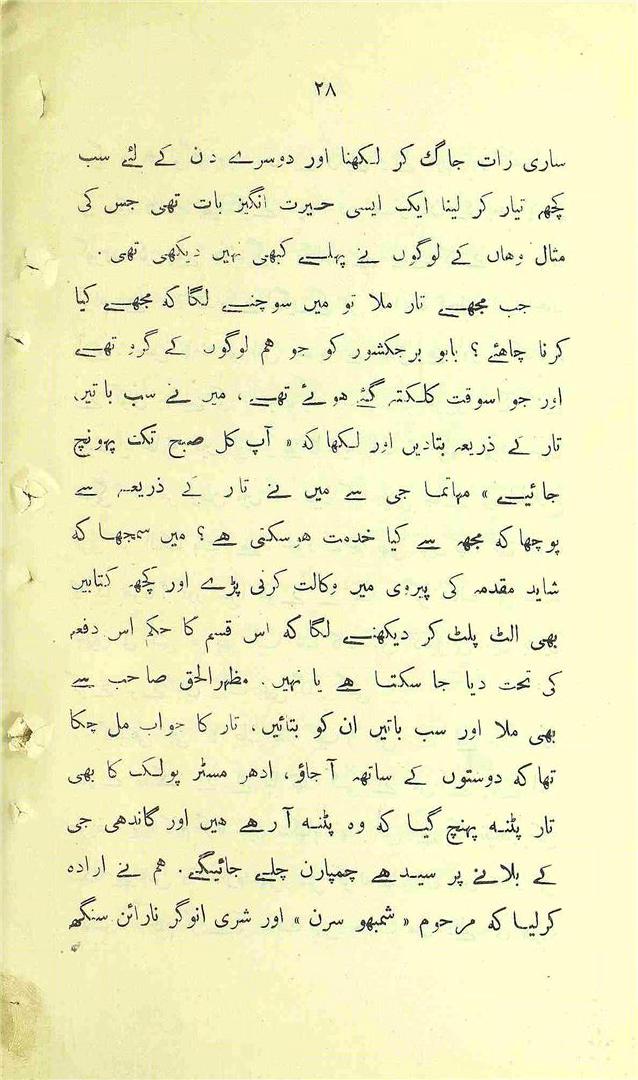 ۲۸
ساری رات جاگ کر لکھنا اور دوسرے دن کے لئے سب
کچھ تیار کر لینا ایک ایسی حیرت انگیز بات تھی جس کی
مثال وہاں کے لوگوں نے پہلے کبھی نہیں دیکھی تھی ۔
جب مجھے تار ملا تو میں سوچنے لگا کہ مجھے کیا
کرنا چاہئے ؟ بابو برجکشور کو جو ہم لوگوں کے گرو تھے
اور جو اسوقت کلکتہ گئے ہوئے تھے ، میں نے سب باتیں
تار کے ذریعہ بتادیں اور لکھا کہ « آپ کل صبح تک پہونچ
جائیے » مہاتما جی سے میں نے تار کے ذریعہ سے
پوچھا کہ مجھ سے کیا خدمت ہوسکتی ہے ؟ میں سمجھا کہ
شاید مقدمہ کی پیروی میں وکالت کرنی پڑے اور کچھ کتابیں
بھی الٹ پلٹ کر دیکھنے لگا کہ اس قسم کا حکم اس دفعہ
کی تحت دیا جا سکتا ہے یا نہیں ۔ مظہرالحق صاحب سے
بھی ملا اور سب باتیں ان کو بتائیں ، تار کا جواب مل چکا
تھا کہ دوستوں کے ساتھ آ جاؤ ، ادھر مسٹر پولک کا بھی
تار پٹنہ پہنچ گیا کہ وہ پٹنہ آ رہے ہیں اور گاندھی جی
کے بلانے پر سیدھے چمپارن چلے جائینگے ۔ ہم نے ارادہ
کرلیا کہ مرحوم « شمبھو سرن » اور شری انوگر نارائن سنگھ